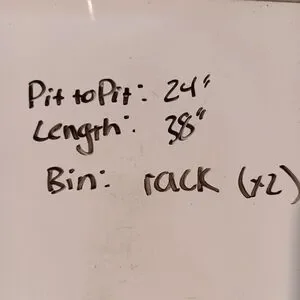 Pit to Pit: 24"
Length: 38"
Bin: rack (x2)